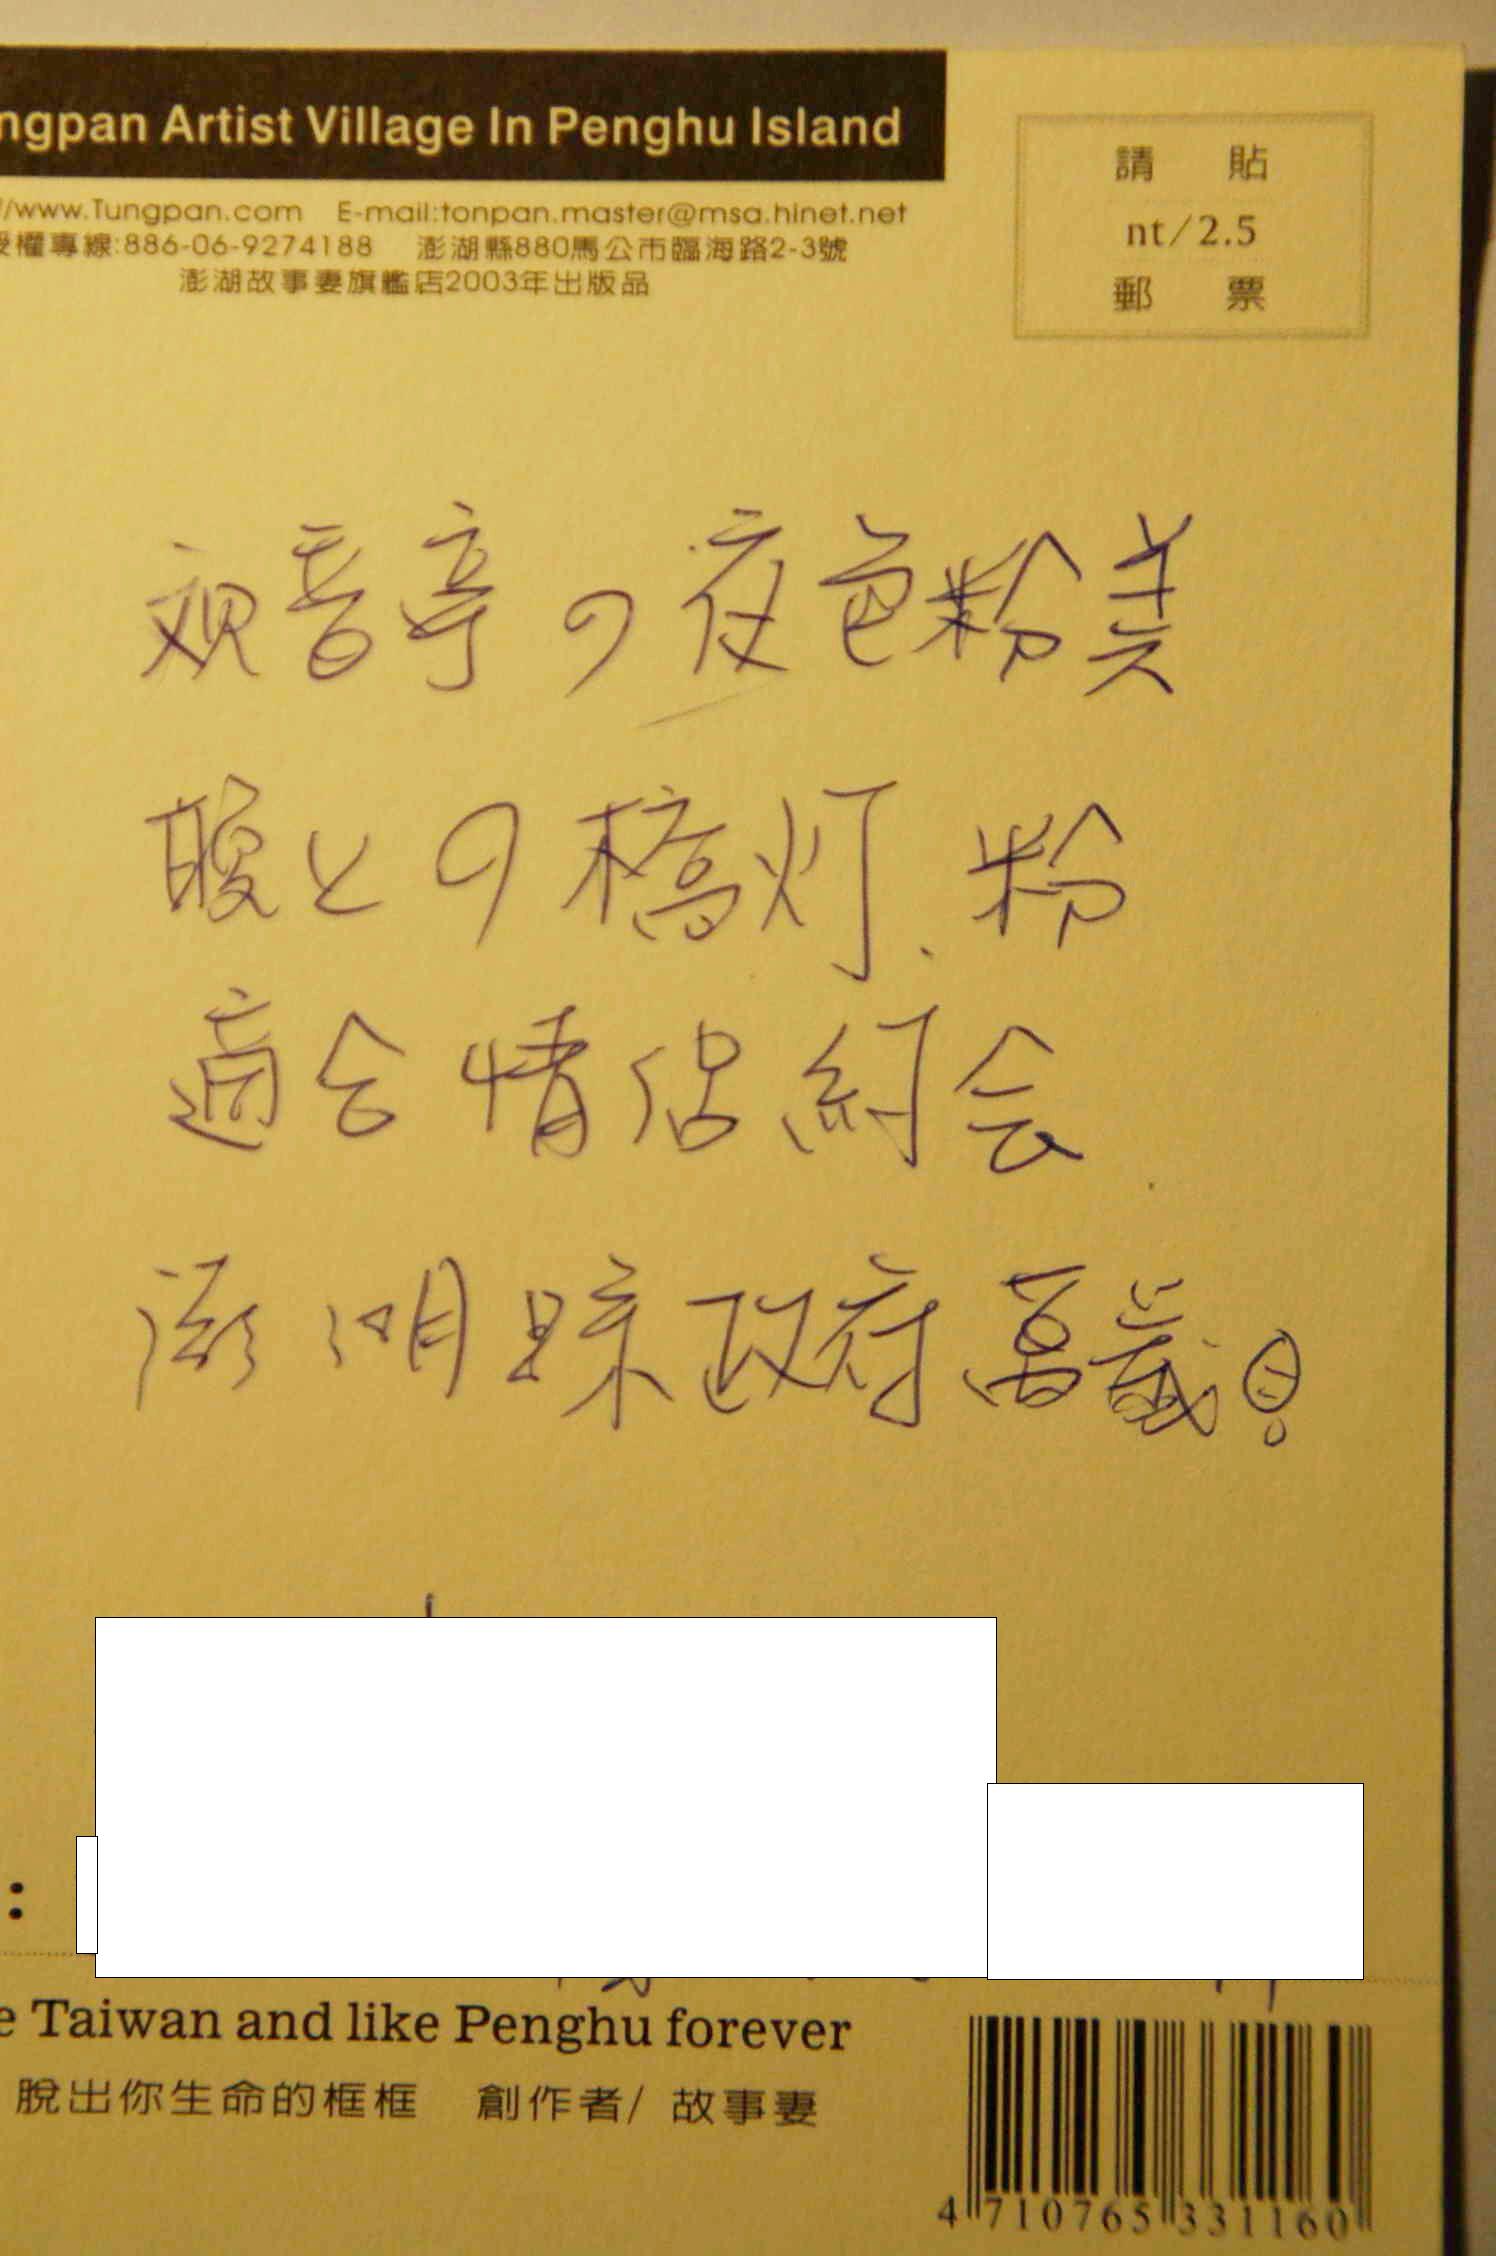 ngpan Artist Village In Penghu Island
//www.Tungpan.com E-mail:tonpan.master@msa.hinet.net
授權專線:886-06-9274188 澎湖縣880馬公市臨海路2-3號
澎湖故事妻旗艦店2003年出版品
請 貼
nt/2.5
郵 票
观音亭の夜色粉美
の橋灯、粉
適合情侣約会
澎湖縣政府萬歲!
:
e Taiwan and like Penghu forever
脫出你生命的框框 創作者/ 故事妻
4 710765 331160